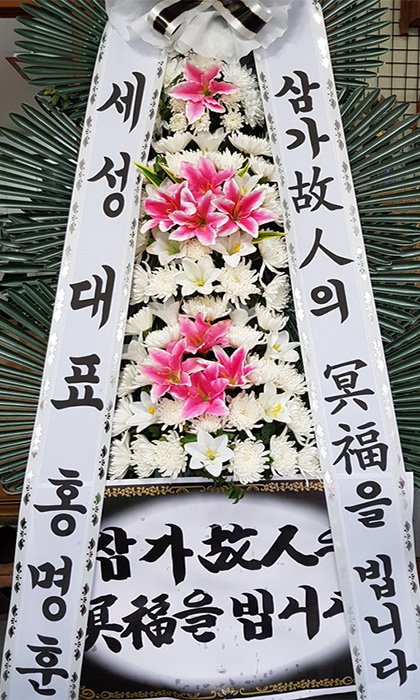 세성 대표 홍명훈
삼가 故人의 冥福을 빕니다
삼가 故人의
冥福을 빕니다